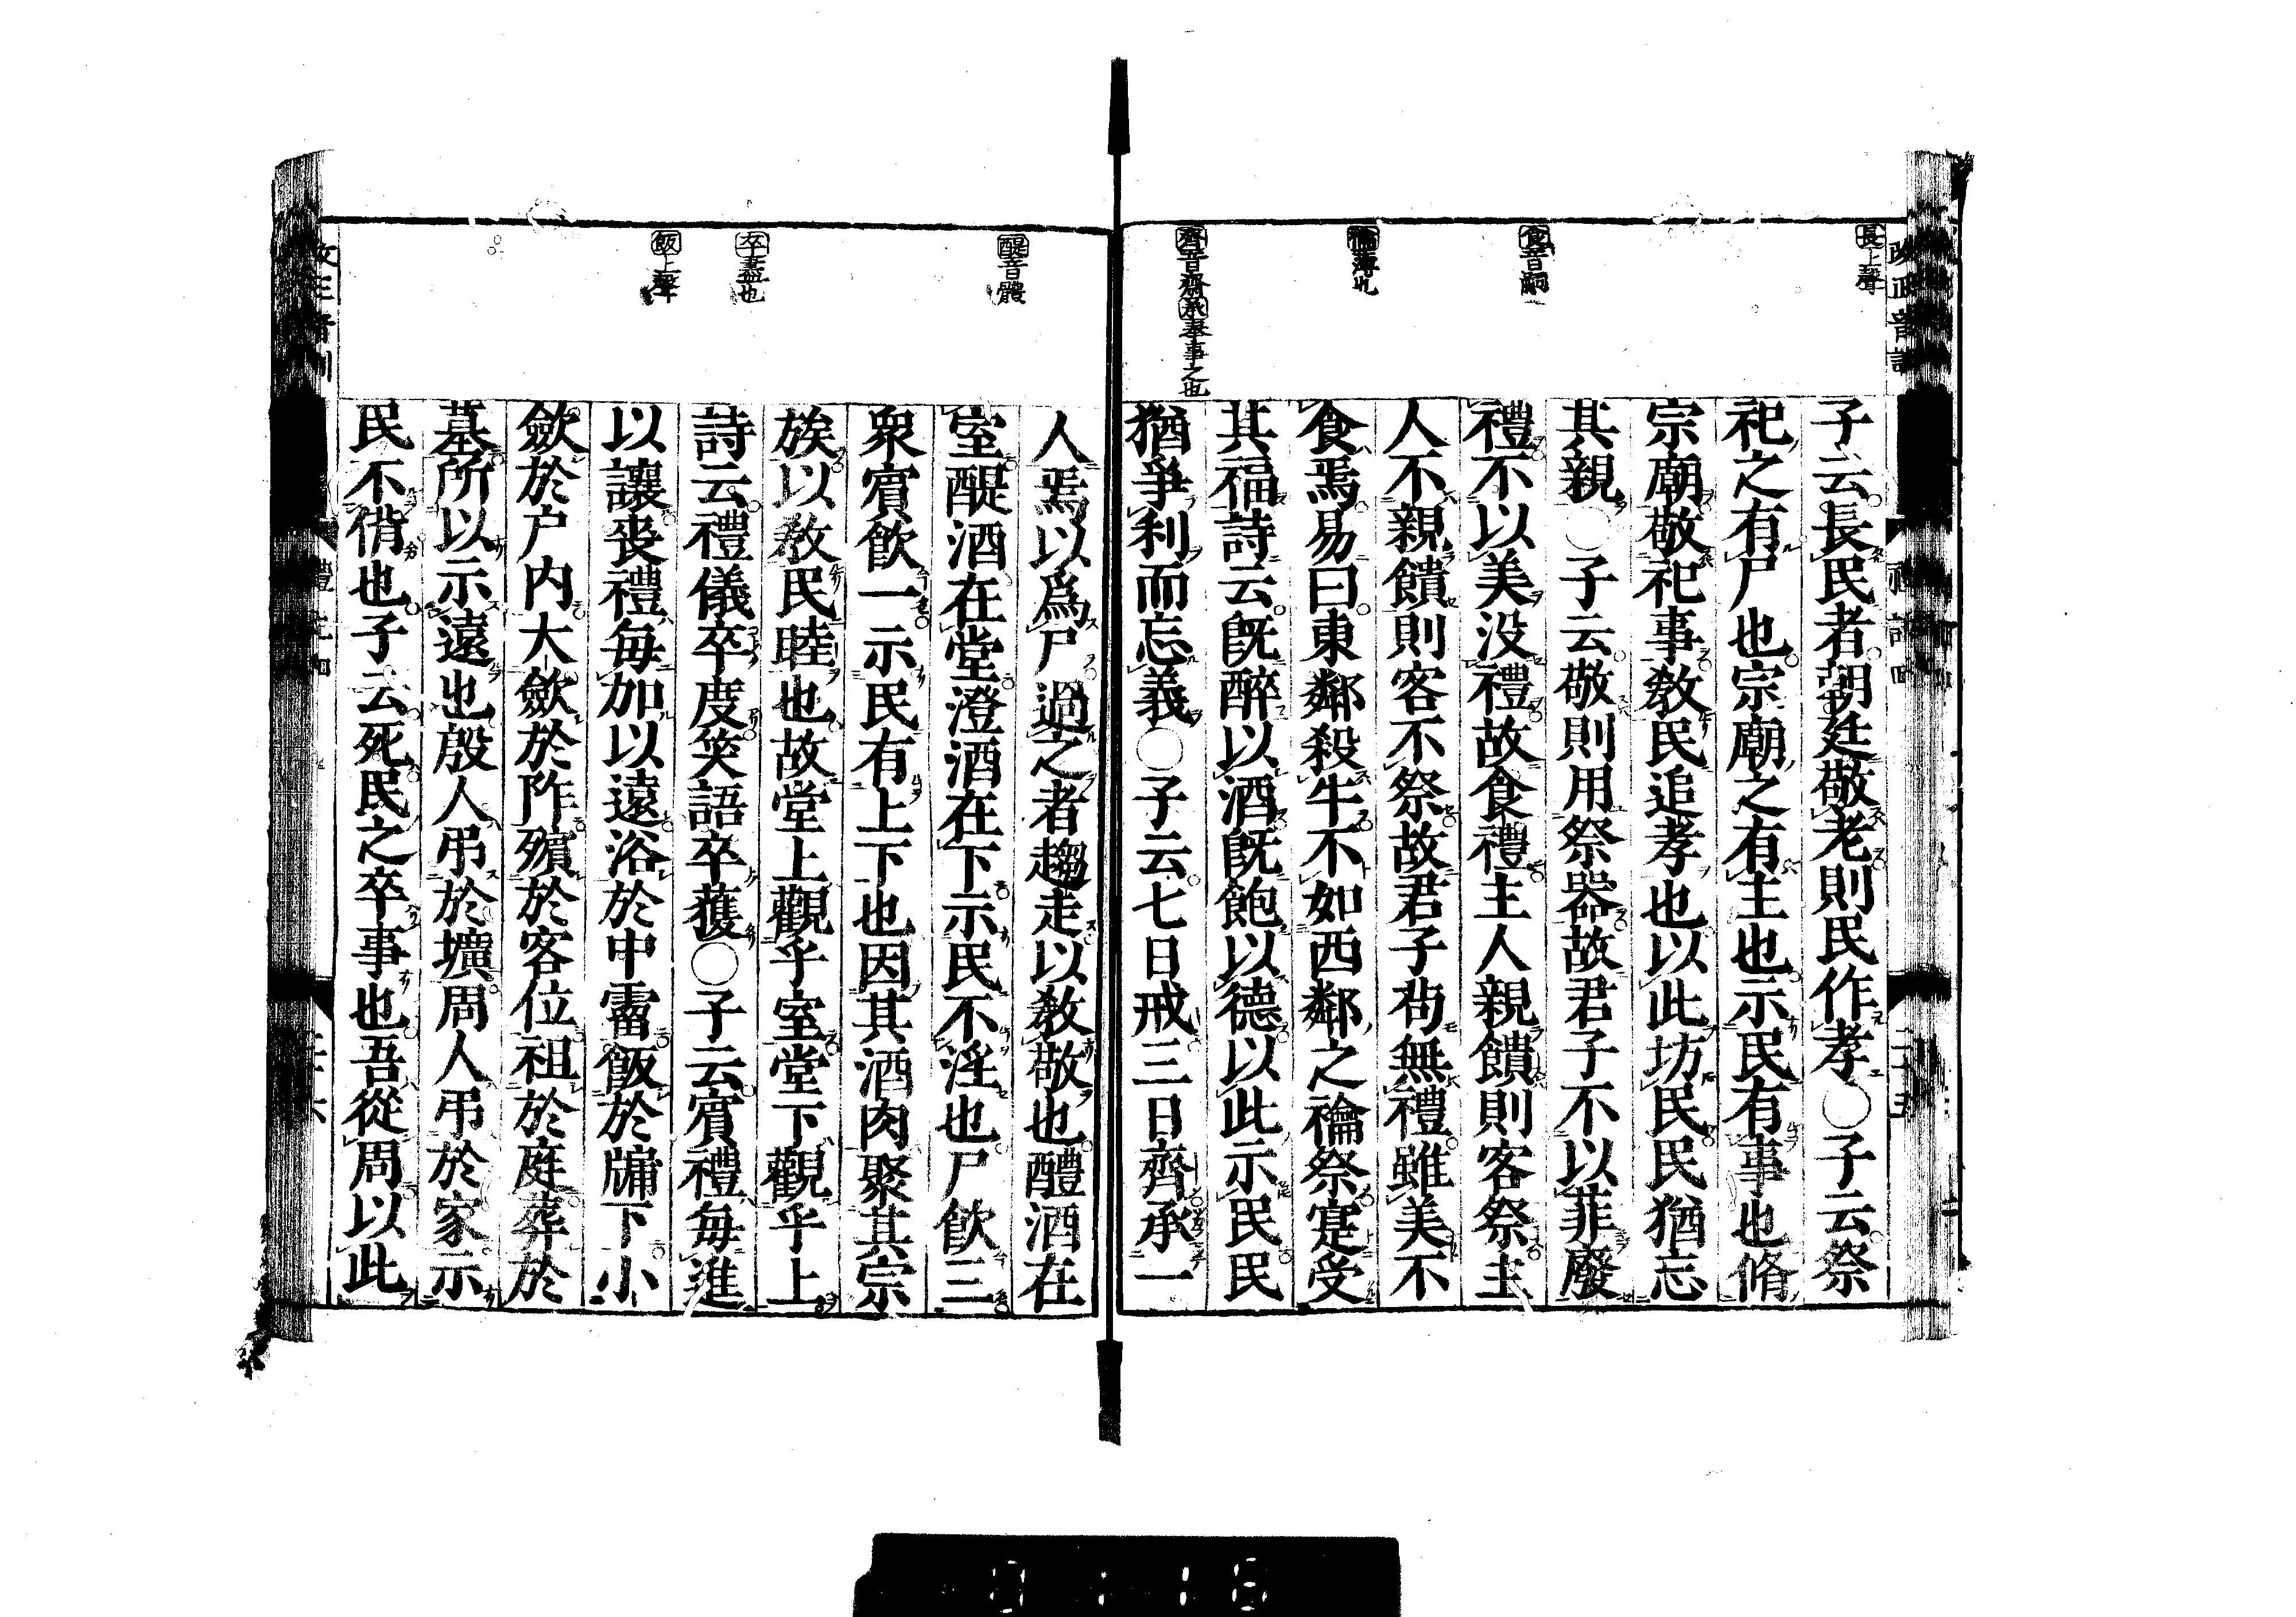 長上聲
食音嗣
禴薄也
齊音齋承奉事之也
子云長民者朝廷敬老則民作孝○子云祭
祀之有尸也宗廟之有主也示民有事也脩
宗廟敬祀事敎民追孝也以此坊民民猶忘
其親○子云敬則用祭器故君子不以菲廢
禮不以美没禮故食禮主人親饋則客祭主
人不親饋則客不祭故君子苟無禮雖美不
食焉易曰東鄰殺牛不如西鄰之禴祭寔受
其福詩云既醉以酒既飽以德以此示民民
猶爭利而忘義○子云七日戒三日齊承一
醍音體
卒盡也
飯上聲
人焉以爲尸過之者趨走以敎敬也醴酒在
室醍酒在堂澄酒在下示民不淫也尸飮三
衆賓飮一示民有上下也因其酒肉聚其宗
族以敎民睦也故堂上觀乎室堂下觀乎上
詩云禮儀卒度笑語卒獲○子云賓禮每進
以讓喪禮每加以遠浴於中霤飯於牖下小
斂於户内大斂於阼殯於客位祖於庭葬於
墓所以示遠也殷人弔於壙周人弔於家示
民不偝也子云死民之卒事也吾從周以此